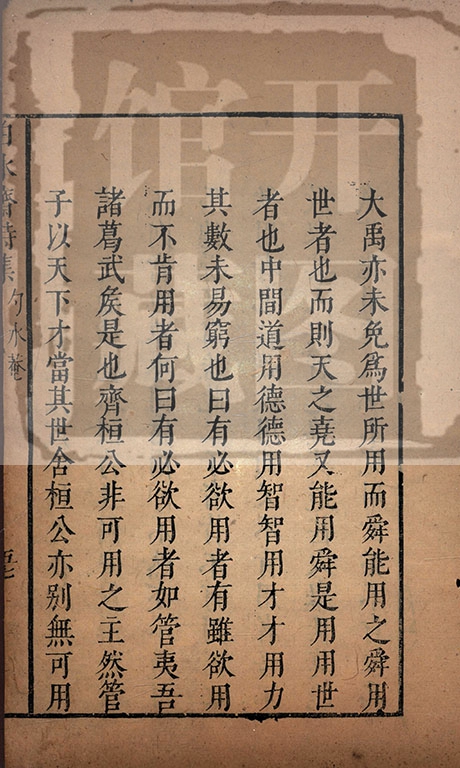 大禹亦未免爲世所用而舜能用之舜用
世者也而則天之堯又能用舜是用用世
者也中間道用德德用智智用才才用力
其數未易窮也曰有必欲用者有雖欲用
而不肯用者何曰有必欲用者如管夷吾
諸葛武矦是也齊桓公非可用之主然管
子以天下才當其世舍桓公亦别無可用
水齋詩集 勺水菴
开图
馆藏